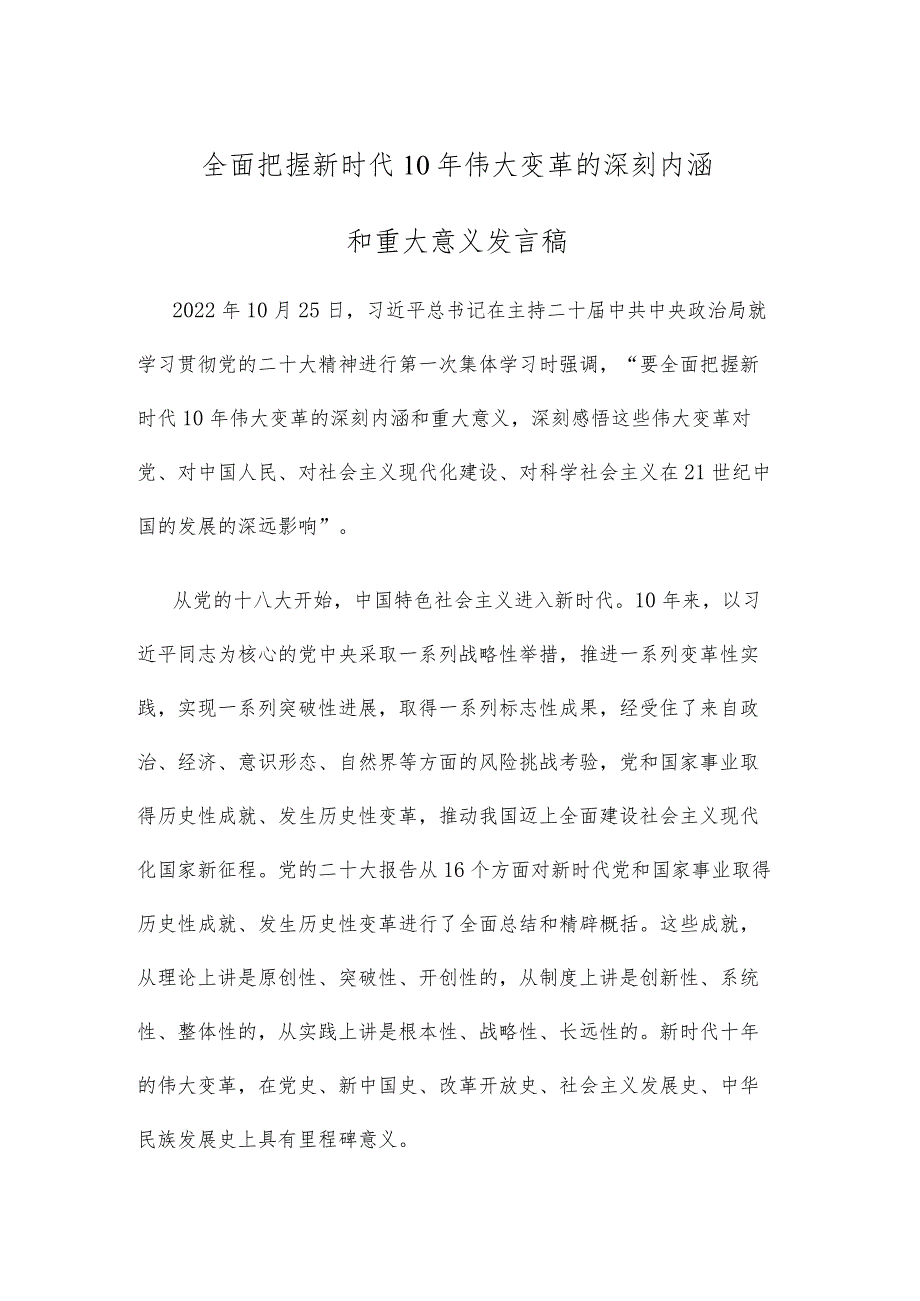 全面把握新时代 10 年伟大变革的深刻内涵
和重大意义发言稿
2022 年 10 月 25 日，习近平总书记在主持二十届中共中央政治局就
学习贯彻党的二十大精神进行第一次集体学习时强调，“要全面把握新
时代 10 年伟大变革的深刻内涵和重大意义，深刻感悟这些伟大变革对
党、对中国人民、对社会主义现代化建设、对科学社会主义在 21 世纪中
国的发展的深远影响”。
从党的十八大开始，中国特色社会主义进入新时代。10 年来，以习
近平同志为核心的党中央采取一系列战略性举措，推进一系列变革性实
践，实现一系列突破性进展，取得一系列标志性成果，经受住了来自政
治、经济、意识形态、自然界等方面的风险挑战考验，党和国家事业取
得历史性成就、发生历史性变革，推动我国迈上全面建设社会主义现代
化国家新征程。党的二十大报告从 16 个方面对新时代党和国家事业取得
历史性成就、发生历史性变革进行了全面总结和精辟概括。这些成就，
从理论上讲是原创性、突破性、开创性的，从制度上讲是创新性、系统
性、整体性的，从实践上讲是根本性、战略性、长远性的。新时代十年
的伟大变革，在党史、新中国史、改革开放史、社会主义发展史、中华
民族发展史上具有里程碑意义。